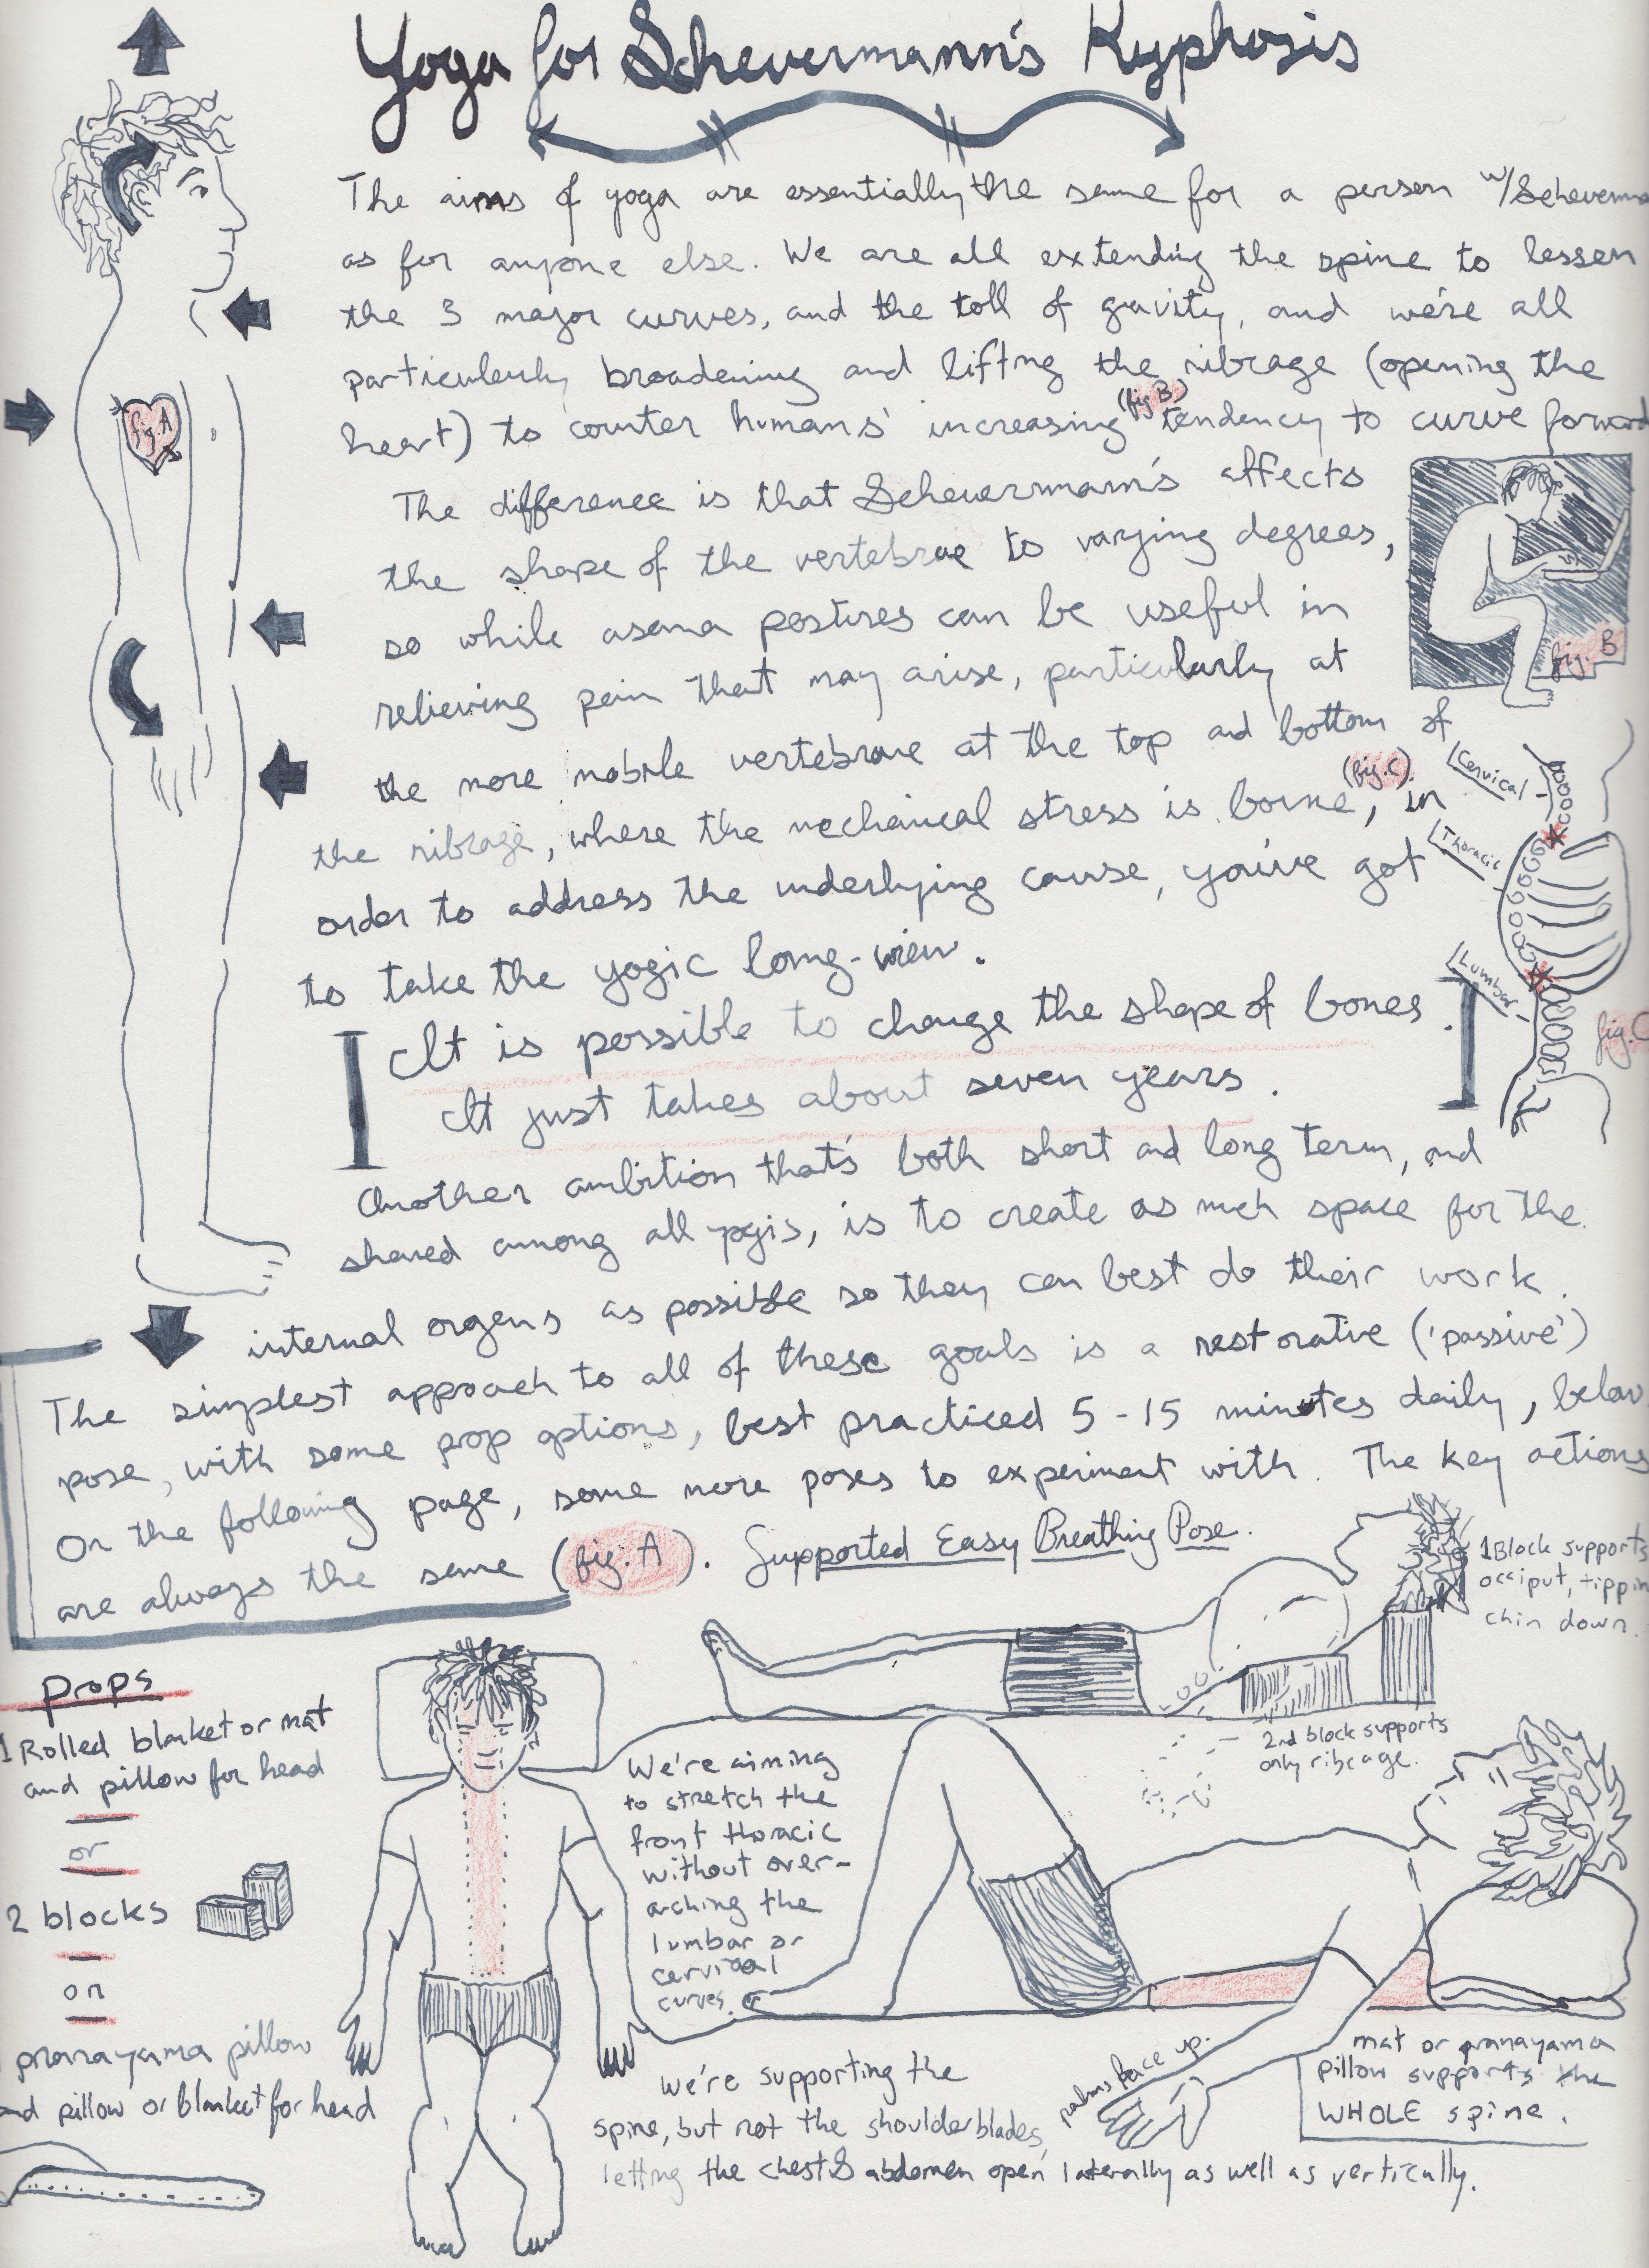 Yoga for Scheuermann's Kyphosis
The aims of yoga are essentially the same for a person w/Scheuerma
as for anyone else. We are all extending the spine to lessen
the 3 major curves, and the toll of gravity, and we're all
particularly broadening and lifting the ribcage (opening the
heart) to counter humans' increasing (fig B) tendency to curve forward
fig A
The difference is that Scheuermann's affects
the shape of the vertebrae to varying degrees,
so while asana postures can be useful in
relieving pain that may arise, particularly at
the more mobile vertebrae at the top and bottom of
the ribcage, where the mechanical stress is borne (fig. C), in
order to address the underlying cause, you've got
to take the yogic long-view.
fig. B
Cervical
Thoracic
Lumbar
fig. C
It is possible to change the shape of bones.
It just takes about seven years.
Another ambition that's both short and long term, and
shared among all yogis, is to create as much space for the
internal organs as possible so they can best do their work.
The simplest approach to all of these goals is a restorative ('passive')
pose, with some prop options, best practiced 5-15 minutes daily, below
On the following page, some more poses to experiment with. The key actions
are always the same (fig. A). Supported Easy Breathing Pose.
1 Block supports
occiput, tippin
chin down.
2nd block supports
only ribcage.
Props
1 Rolled blanket or mat
and pillow for head
or
2 blocks
or
pranayama pillow
and pillow or blanket for head
We're aiming
to stretch the
front thoracic
without over-
arching the
lumbar or
cervical
curves.
palms face up.
mat or pranayama
pillow supports the
WHOLE spine.
We're supporting the
spine, but not the shoulderblades,
letting the chest & abdomen open laterally as well as vertically.